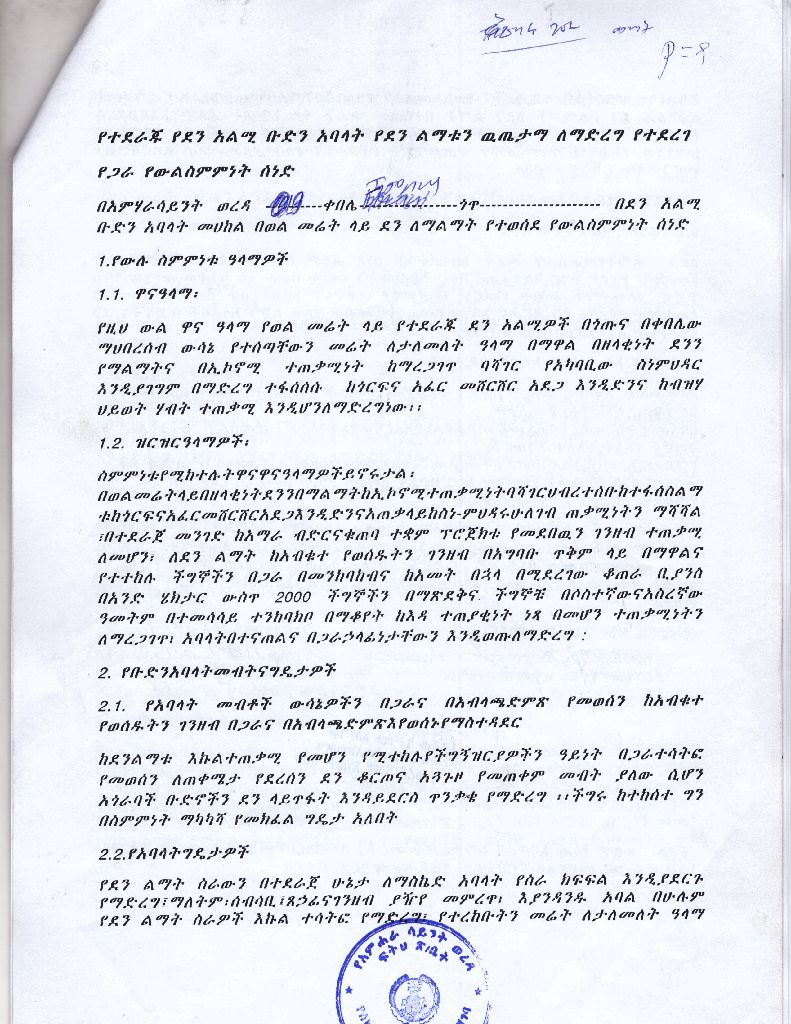 የተደራጁ የደን አልሚ ቡድን አባላት የደን ልማቱን ዉጤታማ ለማድረግ የተደረገ
የጋራ የውልስምምነት ሰነድ
በአምሃራሳይንት ወረዳ 09 -------ቀበሌ ---------------ጎጥ--------------------- በደን አልሚ
ቡድን አባላት መሀከል በወል መሬት ላይ ደን ለማልማት የተወሰደ የውልስምምነት ሰነድ
1.የውሉ ስምምነቱ ዓላማዎች
1.1. ዋናዓላማ፡
የዚህ ውል ዋና ዓላማ የወል መሬት ላይ የተደራጁ ደን አልሚዎች በጎጡና በቀበሌው
ማህበረሰብ ውሳኔ የተሰጣቸውን መሬት ለታለመለት ዓላማ በማዋል በዘላቂነት ደንን
የማልማትና በኢኮኖሚ ተጠቃሚነት ከማረጋገጥ ባሻገር የአካባቢው ስነምህዳር
እንዲያገግም በማድረግ ተፋሰሰሱ ከጎርፍና አፈር መሸርሸር አደጋ እንዲድንና ከብዝሃ
ህይወት ሃብት ተጠቃሚ እንዲሆንለማድረግነው፡፡
1.2. ዝርዝርዓላማዎች፡
ስምምነቱየሚከተሉትዋናዋናዓላማዎችይኖሩታል፡
በወልመሬትላይበዘላቂነትደንንበማልማትከኢኮኖሚተጠቃሚነትባሻገርህብረተሰቡከተፋሰስልማ
ቱከጎርፍናአፈርመሸርሸርአደጋእንዲድንናአጠቃላይከስነ-ምህዳሩሁለገብ ጠቃሚነትን ማሻሻል
፣በተደራጀ መንገድ ከአማራ ብድርናቁጠባ ተቋም ፕሮጀክቱ የመደበዉን ገንዘብ ተጠቃሚ
ለመሆን፣ ለደን ልማት ከአብቁተ የወሰዱትን ገንዘብ በአግባቡ ጥቅም ላይ በማዋልና
የተተከሉ ችግኞችን በጋራ በመንከባከብና ከአመት በኋላ በሚደረገው ቆጠራ ቢያንስ
በአንድ ሄክታር ውስጥ 2000 ችግኞችን በማጽደቅና ችግኞቹ በሶስተኛውናአስረኛው
ዓመትም በተመሳሳይ ተንከባክቦ በማቆየት ከእዳ ተጠያቂነት ነጻ በመሆን ተጠቃሚነትን
ለማረጋገጥ፣ አባላትበተናጠልና በጋራኃላፊነታቸውን እንዲወጡለማድረግ :
2. የቡድንአባላትመብትናግዴታዎች
2.1. የአባላት መብቶች ውሳኔዎችን በጋራና በአብላጫድምጽ የመወሰን ከአብቁተ
የወሰዱትን ገንዘብ በጋራና በአብላጫድምጽእየወሰኑየማስተዳደር
ከደንልማቱ እኩልተጠቃሚ የመሆን የሚተከሉየችግኝዝርያዎችን ዓይነት በጋራተሳትፎ
የመወሰን ለጠቀሜታ የደረሰን ደን ቆርጦና አጓጉዞ የመጠቀም መብት ያለው ሲሆን
አጎራባች ቡድኖችን ደን ላይጥፋት እንዳይደርስ ጥንቃቄ የማድረግ ፡፡ችግሩ ከተከሰተ ግን
በስምምነት ማካካሻ የመክፈል ግዴታ አለበት
2.2.የአባላትግዴታዎች
የደን ልማት ስራውን በተደራጀ ሁኔታ ለማስኬድ አባላት የስራ ክፍፍል እንዲያደርጉ
የማድረግ፣ማለትም፡ሰብሳቢ፣ጸኃፊናገንዘብ ያዥየ መምረጥ፣ እያንዳንዱ አባል በሁሉም
የደን ልማት ስራዎች እኩል ተሳትፎ የማድረግ፣ የተረከቡትን መሬት ለታለመለት ዓላማ
የአምሐራ ሳይንት ወረዳ
ፍትህ ጽ/ቤት